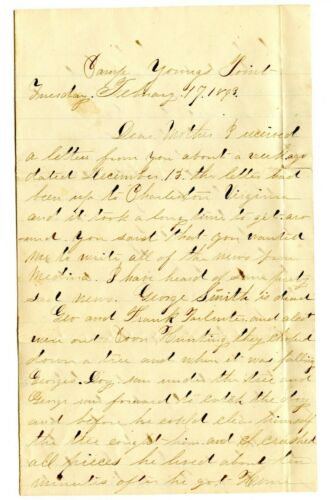 Camp Youngs Point
Tuesday, February 17, 1863
Dear Mother I received
a letter from you about a week ago
dated December 15. the letter had
been up to Charleston Virginia
and it took a long time to get aro
und. You said that you wanted
me to write all of the news from
Medina. I have heard of some pretty
sad news. George Smith is dead
Geo and Frank and a lot
were out Coon Hunting, they choped
down a tree and when it was falling
Georges Dog run under the tree and
George run forward to catch the dog
and before he could clear himself
the tree caught him and crushed
all pieces he lived about ten
minutes after he got Home